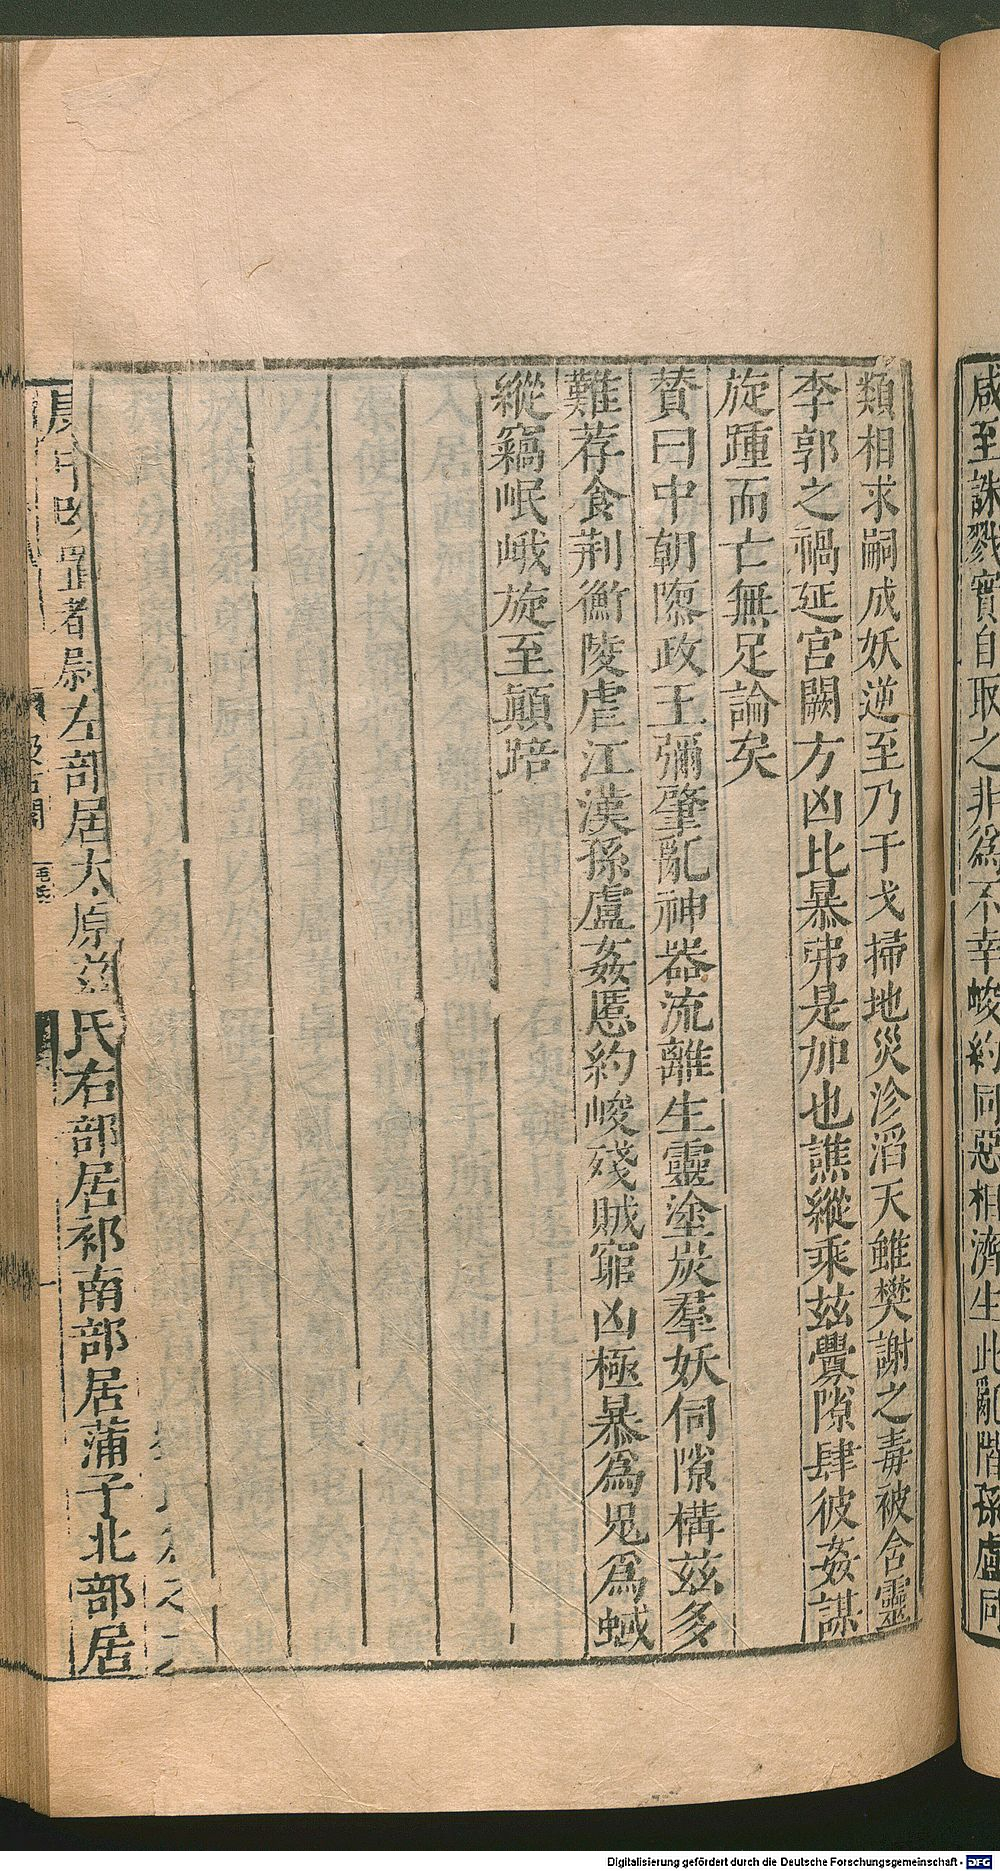 咸至誅戮實自取之非爲不幸峻約同惡相濟生此亂階孫盧同
類相求嗣成妖逆至乃干戈掃地災沴滔天雖樊謝之毒被含靈
李郭之禍延宮闕方凶比暴弗是加也譙縱乘茲釁隙肆彼姦謀
旋踵而亡無足論矣
贊曰中朝隳政王彌肇亂神器流離生靈塗炭羣妖伺隙構茲多
難荐食荆衡陵虐江漢孫盧姦慝約峻殘賊窮凶極暴爲鬼爲蜮
縱竊岷峨旋至顛踣
左部居太原茲氏右部居祁南部居蒲子北部居
汲古閣
毛氏
Digitalisierung gefördert durch die Deutsche Forschungsgemeinschaft - DFG